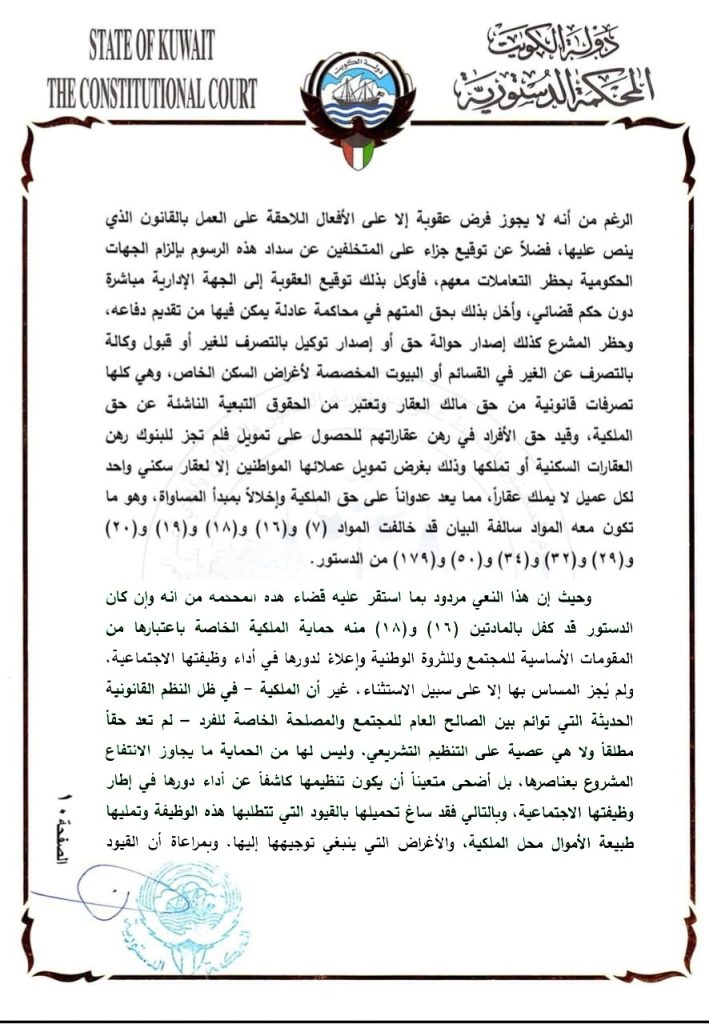 STATE OF KUWAIT
THE CONSTITUTIONAL COURT
دولة الكويت
المحكمة الدستورية
دولة الكويت
الرغم من أنه لا يجوز فرض عقوبة إلا على الأفعال اللاحقة على العمل بالقانون الذي
ينص عليها، فضلاً عن توقيع جزاء على المتخلفين عن سداد هذه الرسوم بإلزام الجهات
الحكومية بحظر التعاملات معهم، فأوكل بذلك توقيع العقوبة إلى الجهة الإدارية مباشرة
دون حكم قضائي، وأخل بذلك بحق المتهم في محاكمة عادلة يمكن فيها من تقديم دفاعه،
وحظر المشرع كذلك إصدار حوالة حق أو إصدار توكيل بالتصرف للغير أو قبول وكالة
بالتصرف عن الغير في القسائم أو البيوت المخصصة لأغراض السكن الخاص، وهي كلها
تصرفات قانونية من حق مالك العقار وتعتبر من الحقوق التبعية الناشئة عن حق
الملكية، وقيد حق الأفراد في رهن عقاراتهم للحصول على تمويل فلم تجز للبنوك رهن
العقارات السكنية أو تملكها وذلك بغرض تمويل عملائها المواطنين إلا لعقار سكني واحد
لكل عميل لا يملك عقاراً، مما يعد عدواناً على حق الملكية وإخلالاً بمبدأ المساواة، وهو ما
تكون معه المواد سالفة البيان قد خالفت المواد (٧) و(١٦) و(١٨) و(١٩) و(٢٠)
و(٢٩) و(٣٢) و(٣٤) و(٥٠) و(١٧٩) من الدستور.
وحيث إن هذا النعي مردود بما استقر عليه قضاء هذه المحكمة من أنه وإن كان
الدستور قد كفل بالمادتين (١٦) و(١٨) منه حماية الملكية الخاصة باعتبارها من
المقومات الأساسية للمجتمع وللثروة الوطنية وإعلاءً لدورها في أداء وظيفتها الاجتماعية،
ولم يُجز المساس بها إلا على سبيل الاستثناء، غير أن الملكية – في ظل النظم القانونية
الحديثة التي توائم بين الصالح العام للمجتمع والمصلحة الخاصة للفرد – لم تعد حقاً
مطلقاً ولا هي عصية على التنظيم التشريعي، وليس لها من الحماية ما يجاوز الانتفاع
المشروع بعناصرها، بل أضحى متعيناً أن يكون تنظيمها كاشفاً عن أداء دورها في إطار
وظيفتها الاجتماعية، وبالتالي فقد ساغ تحميلها بالقيود التي تتطلبها هذه الوظيفة وتمليها
طبيعة الأموال محل الملكية، والأغراض التي ينبغي توجيهها إليها، وبمراعاة أن القيود
الصفحة ١٠
المحكمة الدستورية